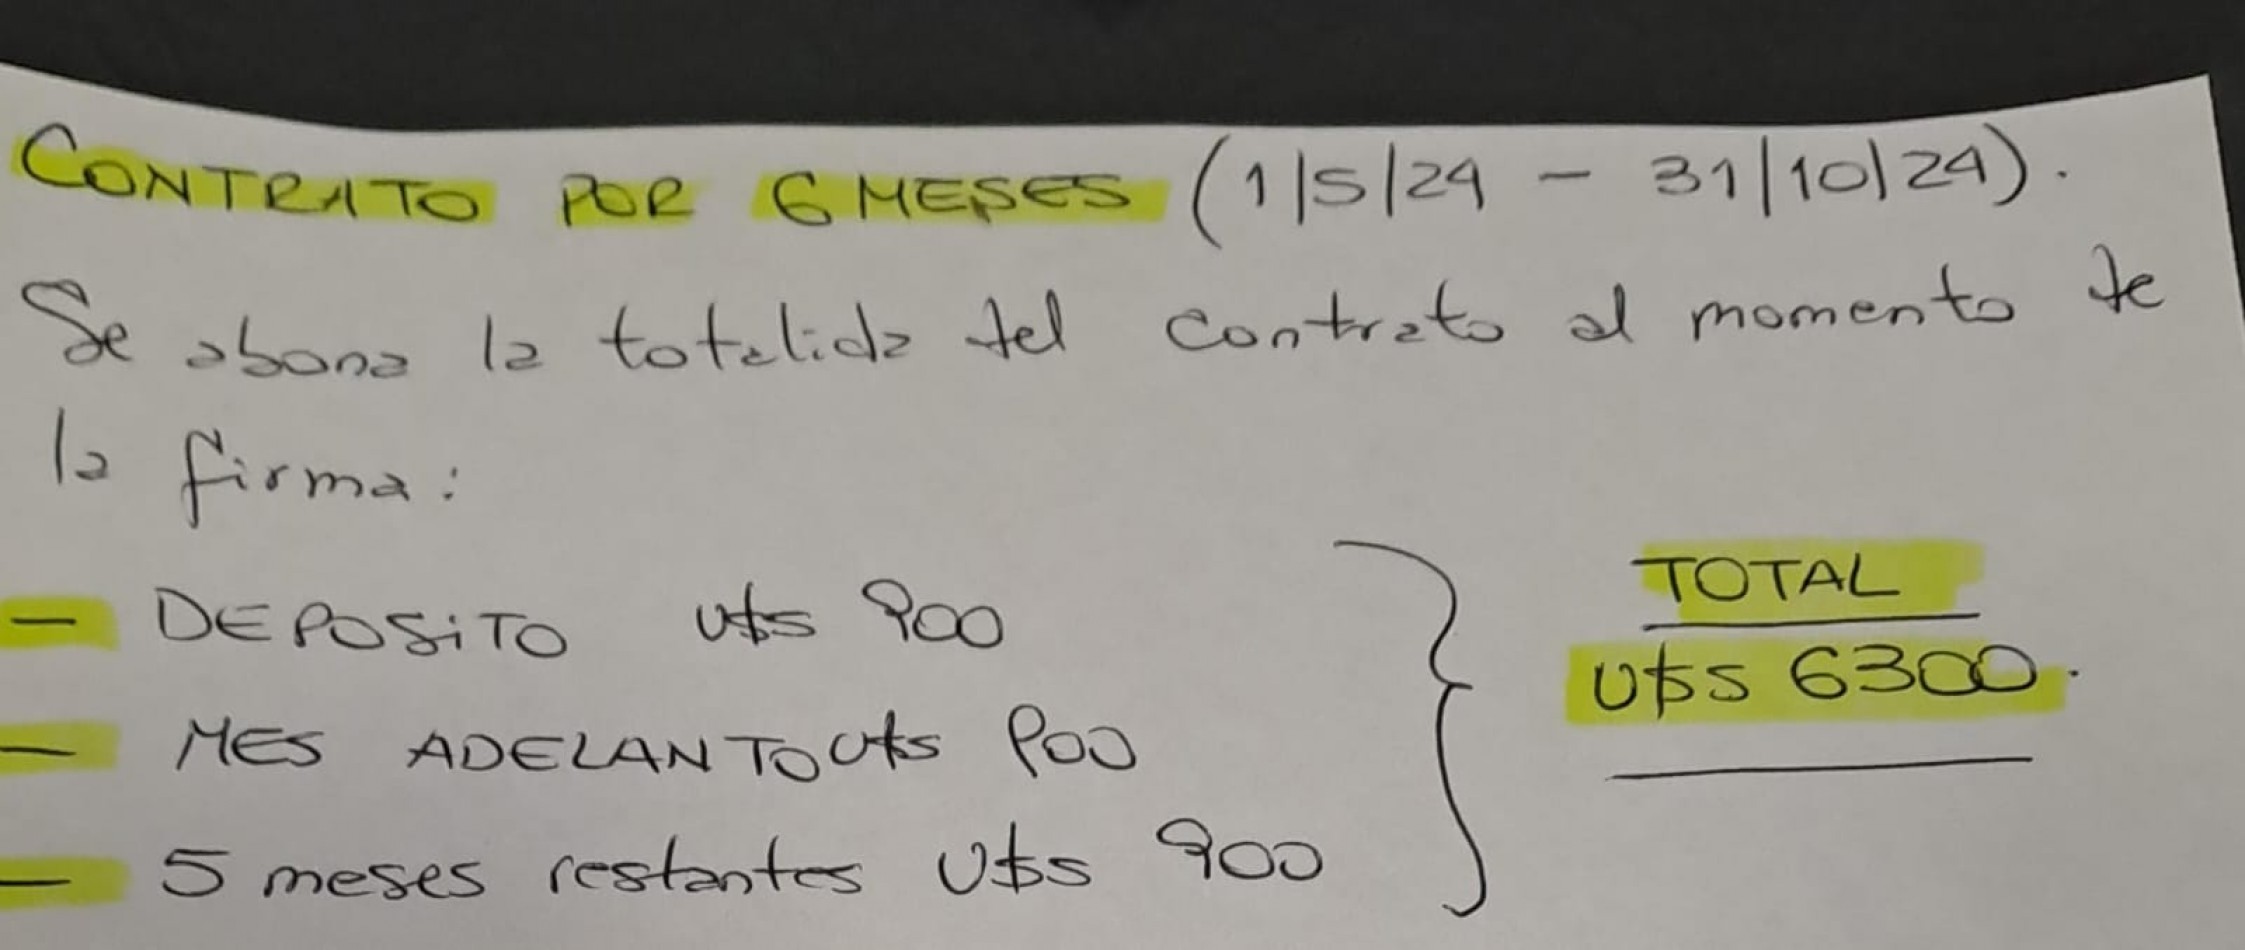 CONTRATO POR 6 MESES (1/5/24 - 31/10/24).
Se abona la totalida del contrato al momento de
la firma:
- DEPOSITO U$S 900
- MES ADELANTO U$S 900
- 5 meses restantes U$S 900
TOTAL
U$S 6300.